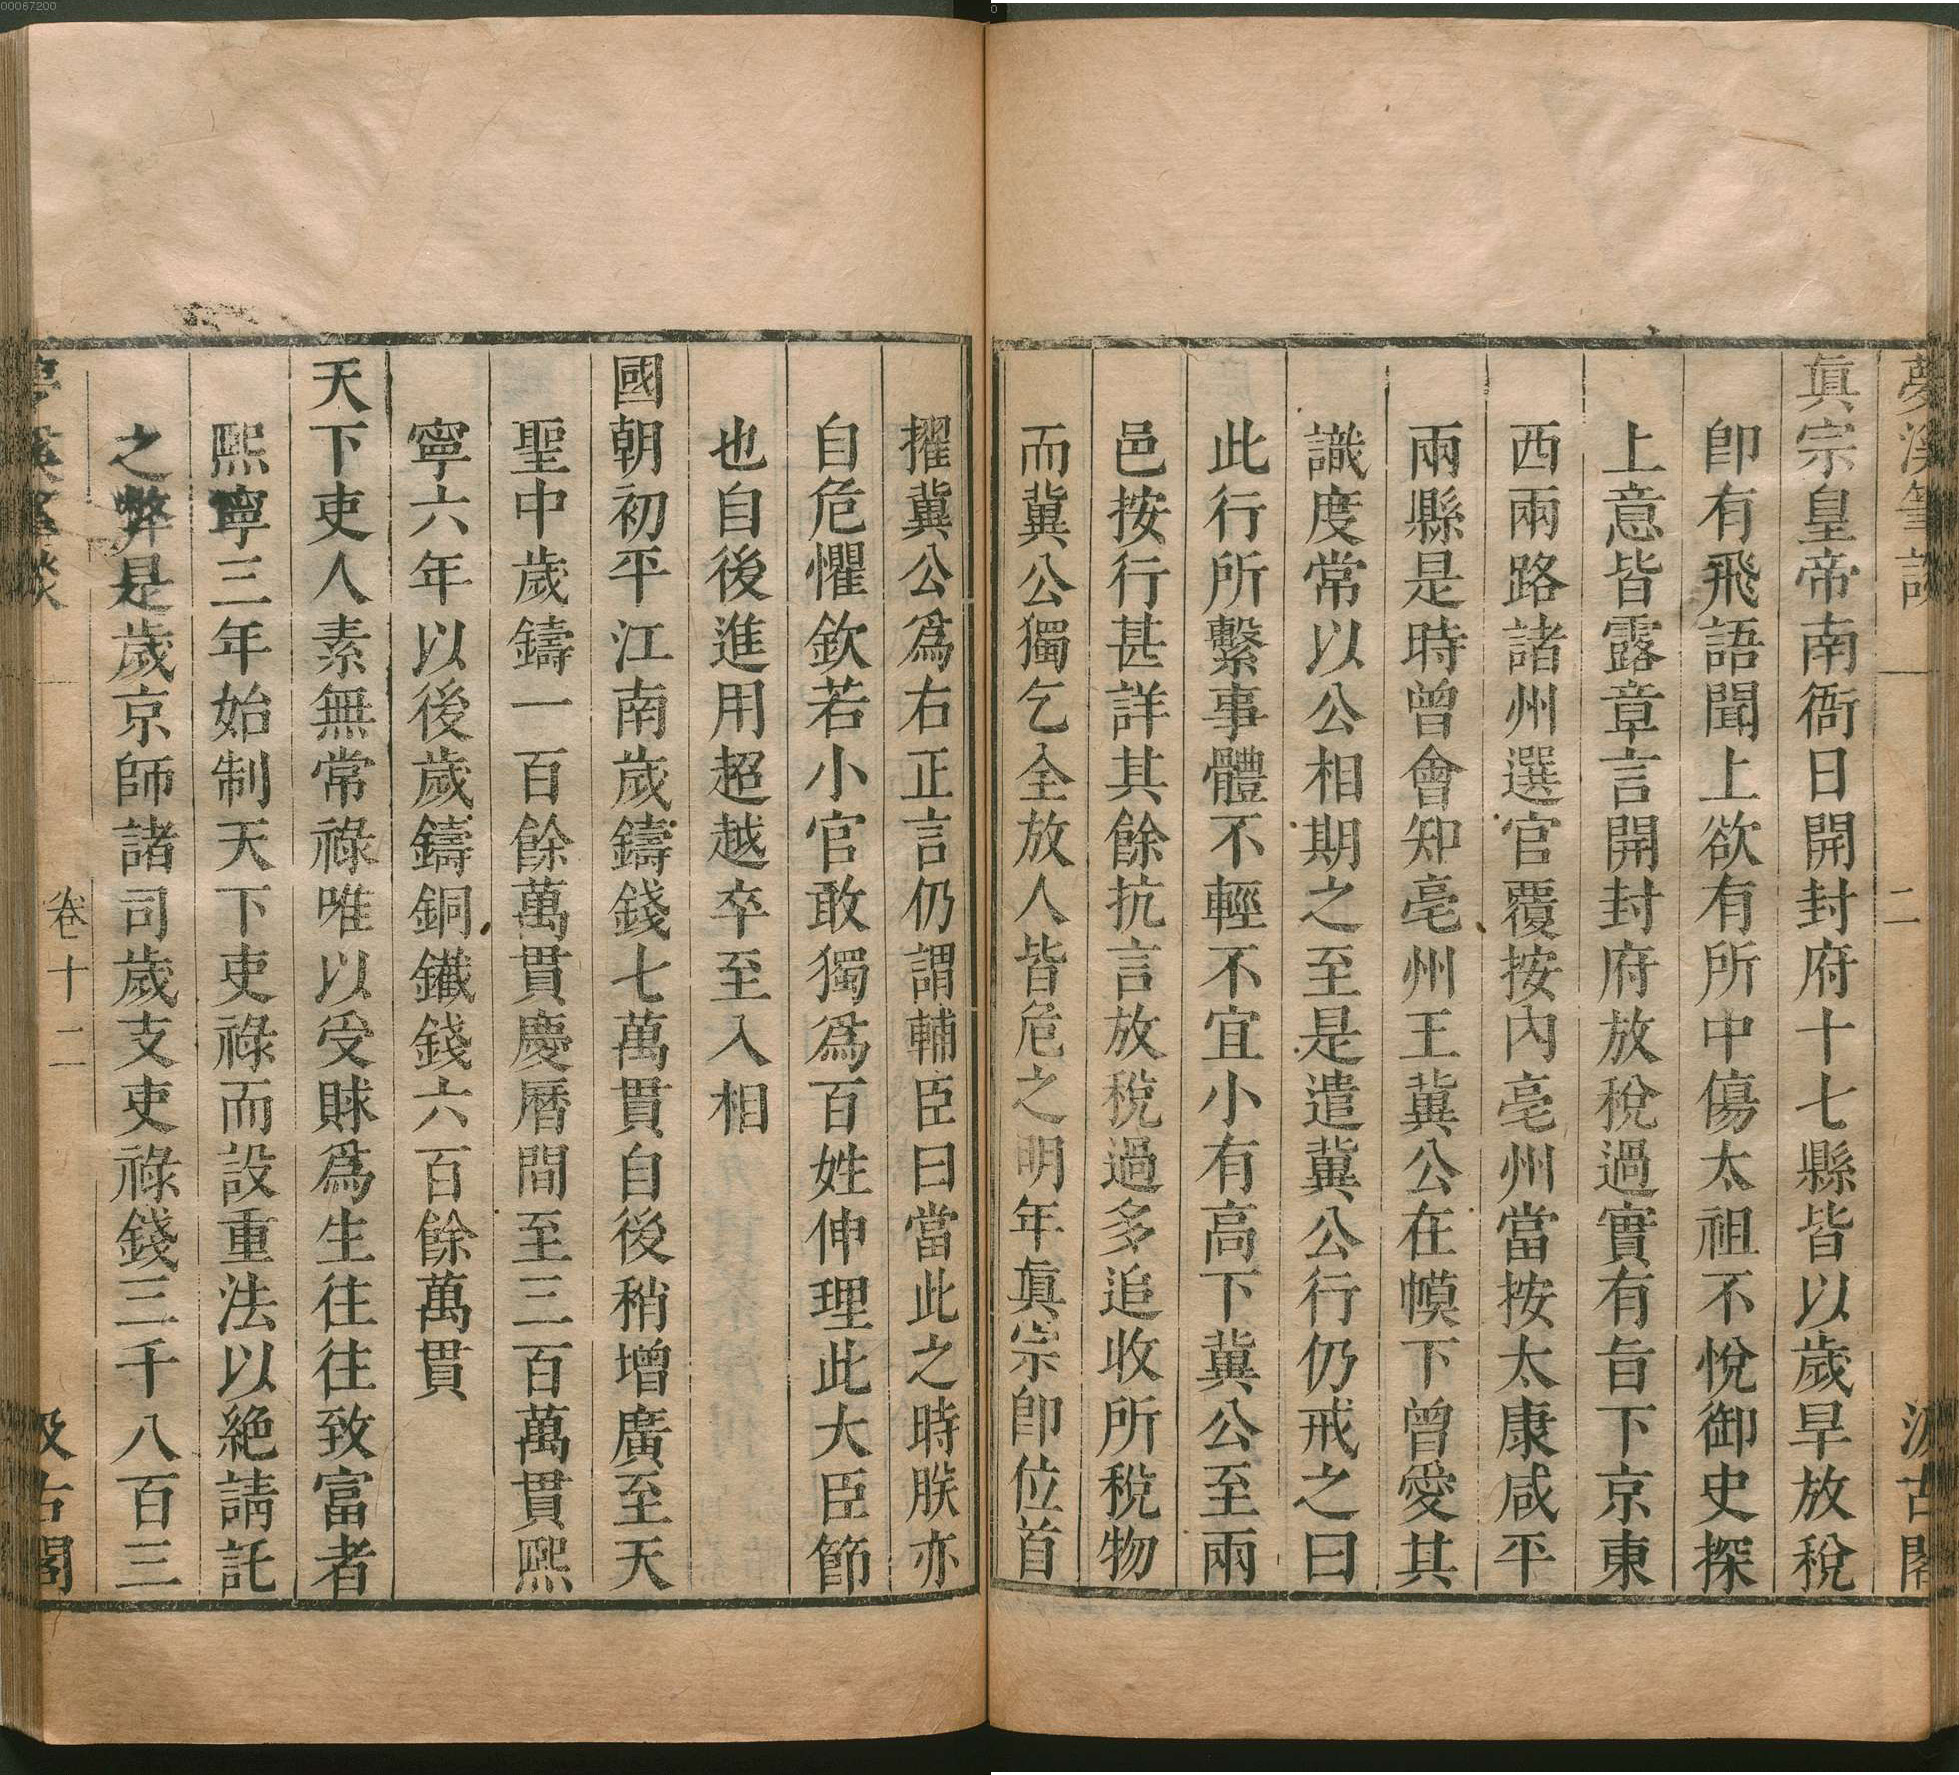 00067200
夢溪筆談 二 汲古閣
眞宗皇帝南衙日開封府十七縣皆以歲旱放稅
卽有飛語聞上欲有所中傷太祖不悅御史探
上意皆露章言開封府放稅過實有旨下京東
西兩路諸州選官覆按內亳州當按太康咸平
兩縣是時曾會知亳州王冀公在幙下曾愛其
識度常以公相期之至是遣冀公行仍戒之曰
此行所繫事體不輕不宜小有高下冀公至兩
邑按行甚詳其餘抗言放稅過多追收所稅物
而冀公獨乞全放人皆危之明年眞宗卽位首
擢冀公爲右正言仍謂輔臣曰當此之時朕亦
自危懼欽若小官敢獨爲百姓伸理此大臣節
也自後進用超越卒至入相
國朝初平江南歲鑄錢七萬貫自後稍增廣至天
聖中歲鑄一百餘萬貫慶曆間至三百萬貫熙
寧六年以後歲鑄銅鐵錢六百餘萬貫
天下吏人素無常祿唯以受賕爲生往往致富者
熙寧三年始制天下吏祿而設重法以絕請託
之弊是歲京師諸司歲支吏祿錢三千八百三
夢溪筆談 卷十二 汲古閣